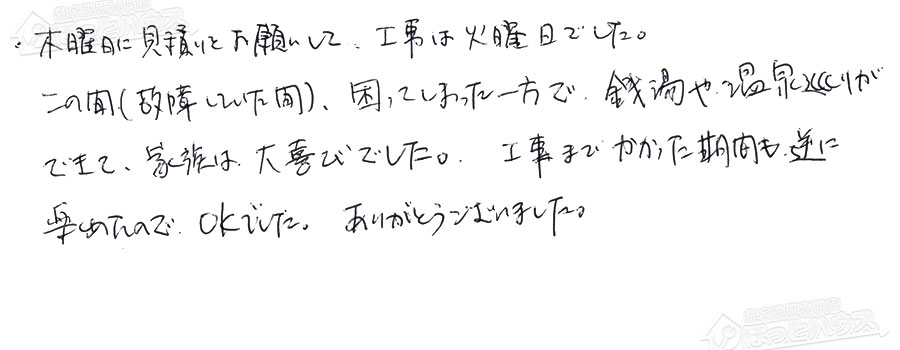 ・木曜日に見積りをお願いして、工事は火曜日でした。
この間(故障していた間)、困ってしまった一方で、銭湯や温泉めぐりが
できて、家族は大喜びでした。工事までかかった期間も逆に
楽めたので、OKでした。ありがとうございました。
住宅設備専門店
ほっとハウス